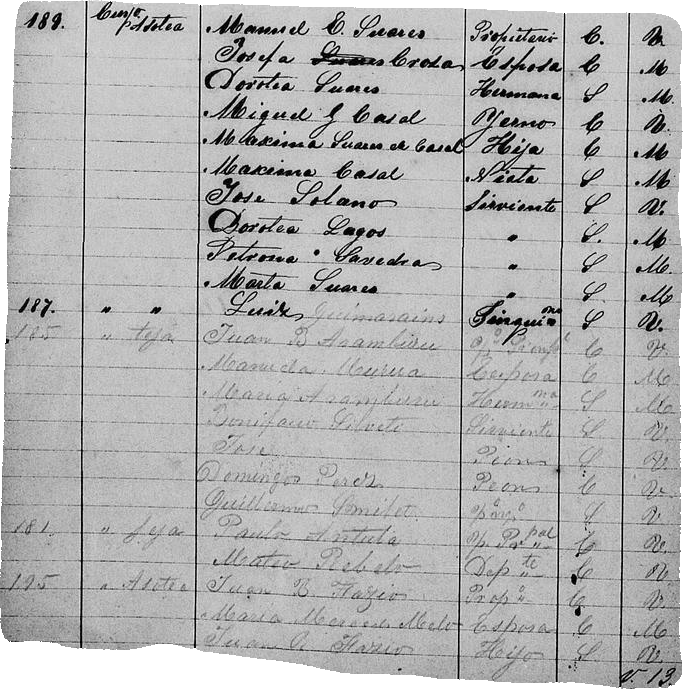 189. Cuya p. Asotea Manuel E. Suares Propietario C. V.
Josefa Suares Crosa Esposa C M
Dorotea Suares Hermana S M.
Miguel G Casal Yerno C V.
Maxima Suares de Casal Hija C M
Maxima Casal Nieta S M
Jose Solano Sirviente S V.
Dorotea Lagos " S. M
Petrona Savedra " S M.
Marta Suares " S M
187. " " Luis Guimarains S V.
185 " teja Juan B Aramburu C V.
Manuela Murua Esposa C M
Maria Aramburu Herm na S M
Bonifacio Silveto Sirviente S V
Jose Peon S V
Domingo Perez Peon C V
Guillermo S V
181. " teja Paulo Antula C V.
Mateo Rebelo Dep te C V
195 " Asotea Juan B Fazio Prop o C V.
Maria Mercedes Melo Esposa C M
Juan Fazio Hijo S. V
V. 13